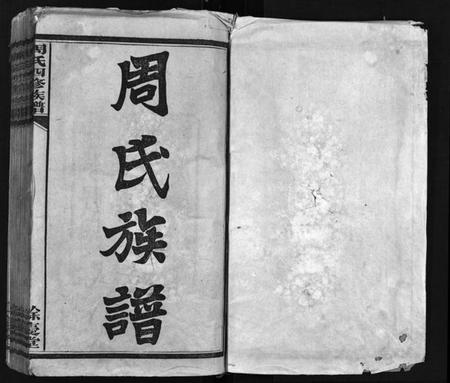 周氏族譜
周氏四修族譜